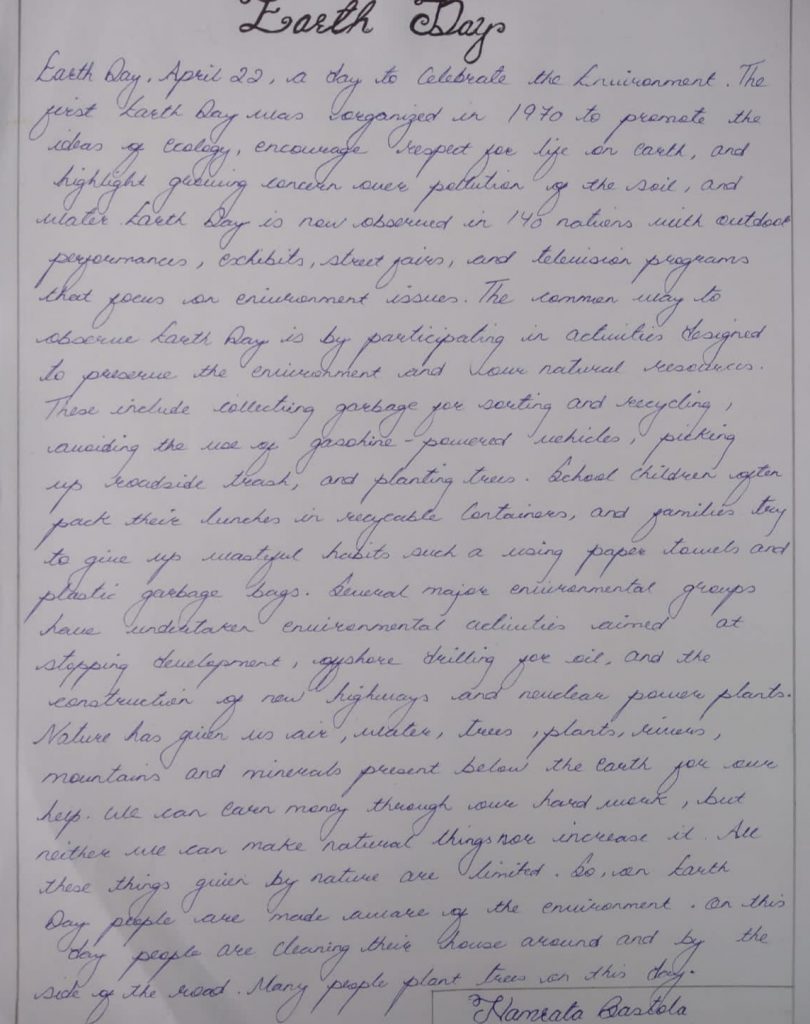 Earth Day
Earth Day, April 22, a day to Celebrate the Environment. The
first Earth Day was organized in 1970 to promote the
ideas of Ecology, encourage respect for life on earth, and
highlight growing concern over pollution of the soil, and
water Earth Day is now observed in 140 nations with outdoor
performances, exhibits, street fairs, and television programs
that focus on environment issues. The common way to
observe Earth Day is by participating in activities designed
to preserve the environment and our natural resources.
These include collecting garbage for sorting and recycling,
avoiding the use of gasoline-powered vehicles, picking
up roadside trash, and planting trees. School Children often
pack their lunches in recycable Containers, and families try
to give up wasteful habits such a using paper towels and
plastic garbage bags. Several major environmental groups
have undertaken environmental activities aimed at
stopping development, offshore drilling for oil, and the
construction of new highways and neuclear power plants.
Nature has given us air, water, trees, plants, rivers,
mountains and minerals present below the Earth for our
help. We can earn money through our hard work, but
neither we can make natural things nor increase it. All
these things given by nature are limited. So, on Earth
Day people are made aware of the environment. On this
day people are cleaning their house around and by the
side of the road. Many people plant trees on this day.
Namrata Bastola